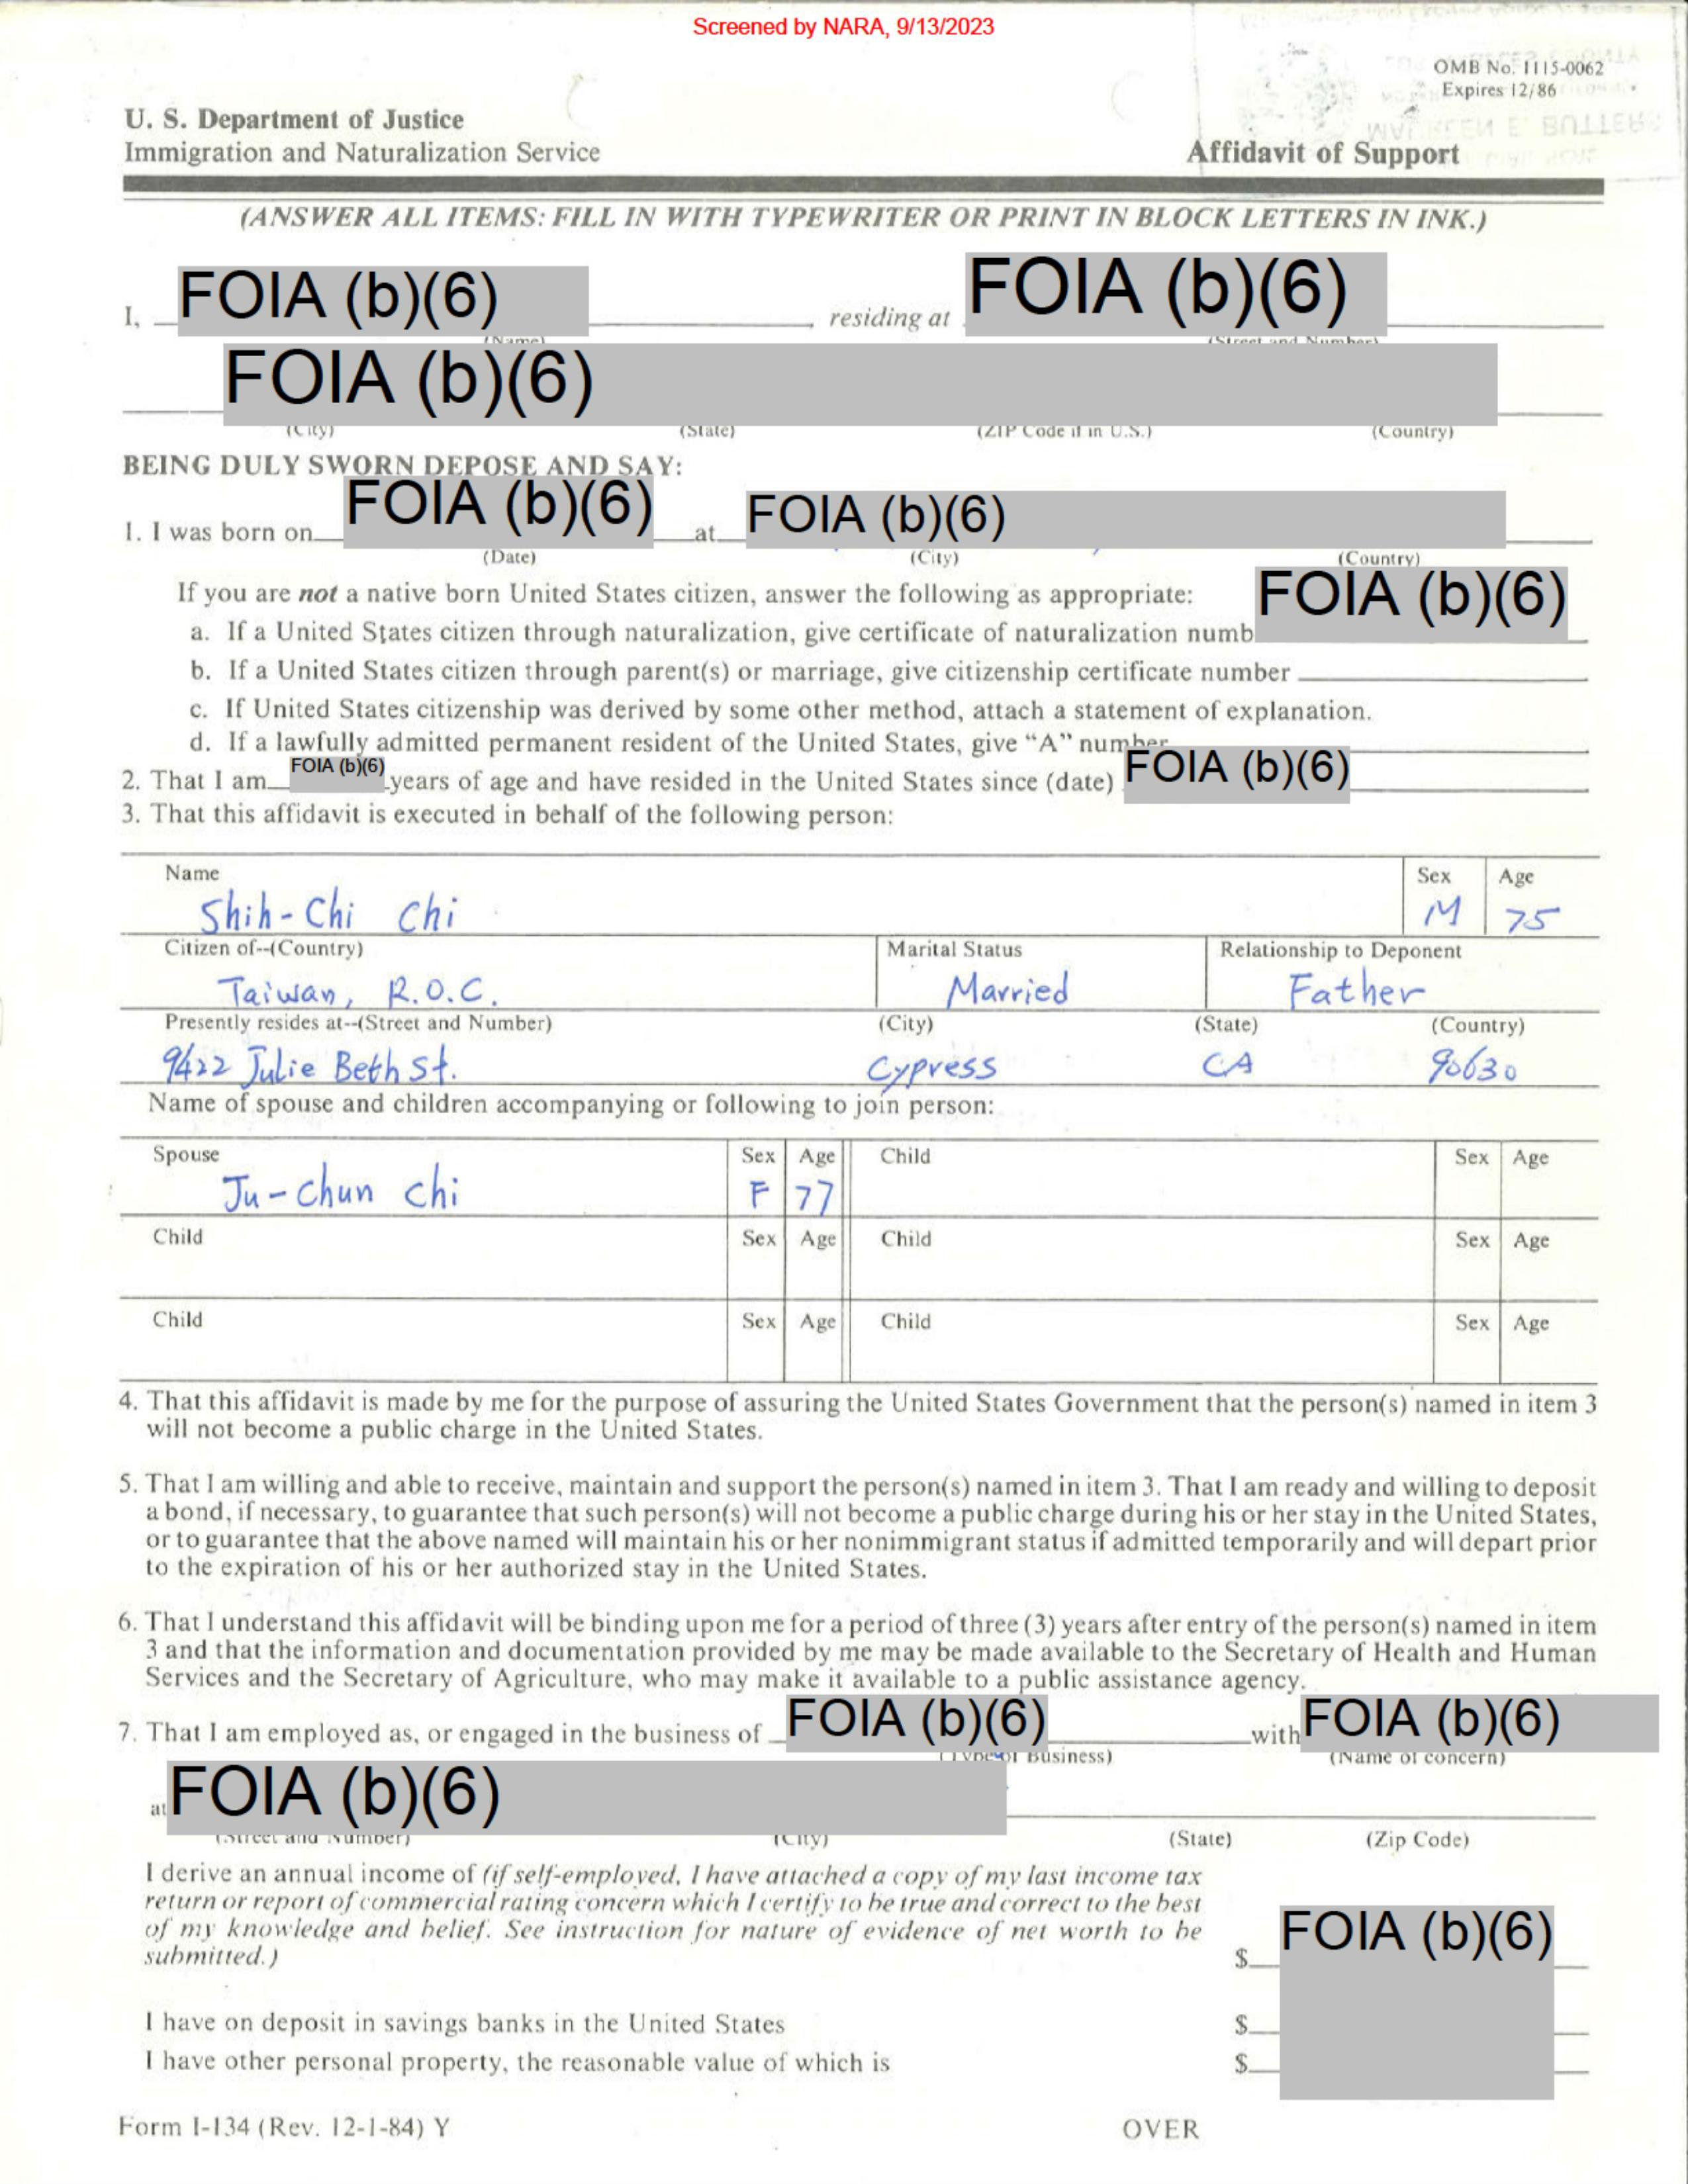 Screened by NARA, 9/13/2023
OMB No. 1115-0062
Expires 12/86
U. S. Department of Justice
Immigration and Naturalization Service
Affidavit of Support
(ANSWER ALL ITEMS: FILL IN WITH TYPEWRITER OR PRINT IN BLOCK LETTERS IN INK.)
I, FOIA (b)(6) , residing at FOIA (b)(6)
(Name) (Street and Number)
FOIA (b)(6)
(City) (State) (ZIP Code if in U.S.) (Country)
BEING DULY SWORN DEPOSE AND SAY:
1. I was born on FOIA (b)(6) at FOIA (b)(6)
(Date) (City) (Country)
If you are not a native born United States citizen, answer the following as appropriate: FOIA (b)(6)
a. If a United States citizen through naturalization, give certificate of naturalization numb
b. If a United States citizen through parent(s) or marriage, give citizenship certificate number
c. If United States citizenship was derived by some other method, attach a statement of explanation.
d. If a lawfully admitted permanent resident of the United States, give "A" number
2. That I am FOIA (b)(6) years of age and have resided in the United States since (date) FOIA (b)(6)
3. That this affidavit is executed in behalf of the following person:
Name Sex Age
Shih-Chi Chi M 75
Citizen of--(Country) Marital Status Relationship to Deponent
Taiwan, R.O.C. Married Father
Presently resides at--(Street and Number) (City) (State) (Country)
9422 Julie Beth St. Cypress CA 90630
Name of spouse and children accompanying or following to join person:
Spouse Sex Age Child Sex Age
Ju-Chun Chi F 77
Child Sex Age Child Sex Age
Child Sex Age Child Sex Age
4. That this affidavit is made by me for the purpose of assuring the United States Government that the person(s) named in item 3
will not become a public charge in the United States.
5. That I am willing and able to receive, maintain and support the person(s) named in item 3. That I am ready and willing to deposit
a bond, if necessary, to guarantee that such person(s) will not become a public charge during his or her stay in the United States,
or to guarantee that the above named will maintain his or her nonimmigrant status if admitted temporarily and will depart prior
to the expiration of his or her authorized stay in the United States.
6. That I understand this affidavit will be binding upon me for a period of three (3) years after entry of the person(s) named in item
3 and that the information and documentation provided by me may be made available to the Secretary of Health and Human
Services and the Secretary of Agriculture, who may make it available to a public assistance agency.
7. That I am employed as, or engaged in the business of FOIA (b)(6) with FOIA (b)(6)
(Type of Business) (Name of concern)
at FOIA (b)(6)
(Street and Number) (City) (State) (Zip Code)
I derive an annual income of (if self-employed, I have attached a copy of my last income tax
return or report of commercial rating concern which I certify to be true and correct to the best
of my knowledge and belief. See instruction for nature of evidence of net worth to be
submitted.) $ FOIA (b)(6)
I have on deposit in savings banks in the United States $
I have other personal property, the reasonable value of which is $
Form I-134 (Rev. 12-1-84) Y OVER